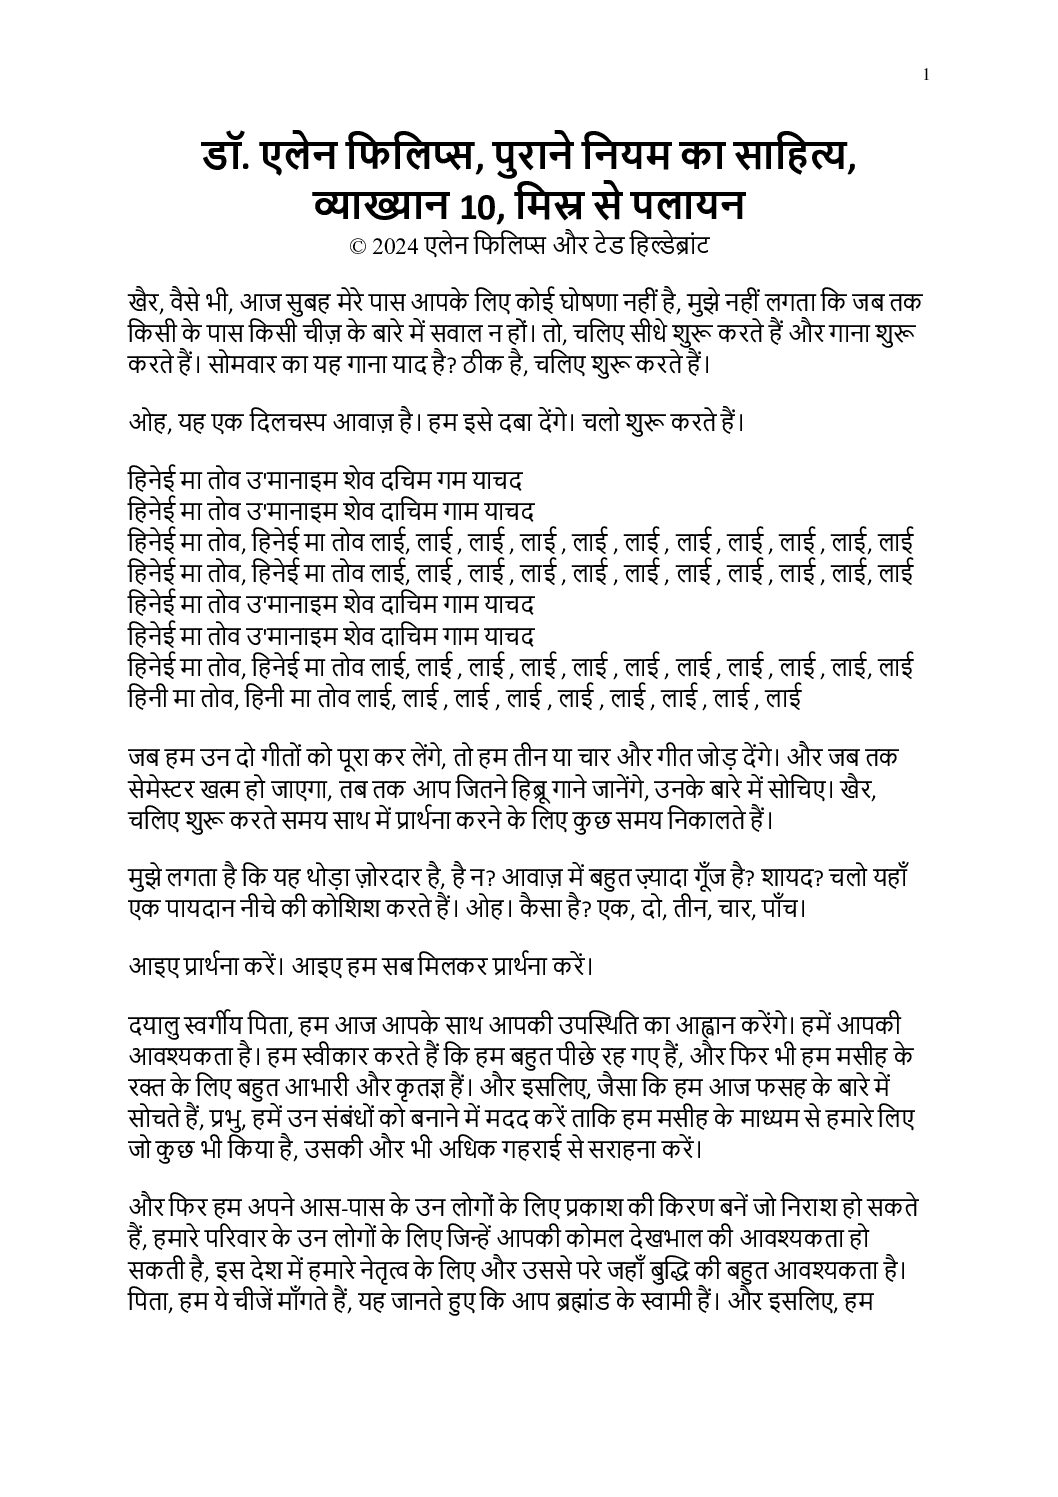 1
डॉ. एलेन फिलिप्स, पुराने नियम का साहित्य,
व्याख्यान 10, मिस्र से पलायन
© 2024 एलेन फिलिप्स और टेड हिल्डेब्रांट
खैर, वैसे भी, आज सुबह मेरे पास आपके लिए कोई घोषणा नहीं है, मुझे नहीं लगता कि जब तक
किसी के पास किसी चीज़ के बारे में सवाल न हों। तो, चलिए सीधे शुरू करते हैं और गाना शुरू
करते हैं। सोमवार का यह गाना याद है? ठीक है, चलिए शुरू करते हैं।
ओह, यह एक दिलचस्प आवाज़ है। हम इसे दबा देंगे। चलो शुरू करते हैं।
हिनेई मा तोव उ'मानाइम शेव दचिम गम याचद
हिनेई मा तोव उ'मानाइम शेव दाचिम गाम याचद
हिनेई मा तोव, हिनेई मा तोव लाई, लाई , लाई , लाई , लाई , लाई , लाई , लाई , लाई , लाई, लाई
हिनेई मा तोव, हिनेई मा तोव लाई, लाई , लाई , लाई , लाई , लाई , लाई , लाई , लाई , लाई, लाई
हिनेई मा तोव उ'मानाइम शेव दाचिम गाम याचद
हिनेई मा तोव उ'मानाइम शेव दाचिम गाम याचद
हिनेई मा तोव, हिनेई मा तोव लाई, लाई , लाई , लाई , लाई , लाई , लाई , लाई , लाई , लाई, लाई
हिनी मा तोव, हिनी मा तोव लाई, लाई , लाई , लाई , लाई , लाई , लाई , लाई , लाई
जब हम उन दो गीतों को पूरा कर लेंगे, तो हम तीन या चार और गीत जोड़ देंगे। और जब तक
सेमेस्टर खत्म हो जाएगा, तब तक आप जितने हिब्रू गाने जानेंगे, उनके बारे में सोचिए। खैर,
चलिए शुरू करते समय साथ में प्रार्थना करने के लिए कुछ समय निकालते हैं।
मुझे लगता है कि यह थोड़ा ज़ोरदार है, है न? आवाज़ में बहुत ज़्यादा गूँज है? शायद? चलो यहाँ
एक पायदान नीचे की कोशिश करते हैं। ओह। कैसा है? एक, दो, तीन, चार, पाँच।
आइए प्रार्थना करें। आइए हम सब मिलकर प्रार्थना करें।
दयालु स्वर्गीय पिता, हम आज आपके साथ आपकी उपस्थिति का आह्वान करेंगे। हमें आपकी
आवश्यकता है। हम स्वीकार करते हैं कि हम बहुत पीछे रह गए हैं, और फिर भी हम मसीह के
रक्त के लिए बहुत आभारी और कृतज्ञ हैं। और इसलिए, जैसा कि हम आज फसह के बारे में
सोचते हैं, प्रभु, हमें उन संबंधों को बनाने में मदद करें ताकि हम मसीह के माध्यम से हमारे लिए
जो कुछ भी किया है, उसकी और भी अधिक गहराई से सराहना करें।
और फिर हम अपने आस-पास के उन लोगों के लिए प्रकाश की किरण बनें जो निराश हो सकते
हैं, हमारे परिवार के उन लोगों के लिए जिन्हें आपकी कोमल देखभाल की आवश्यकता हो
सकती है, इस देश में हमारे नेतृत्व के लिए और उससे परे जहाँ बुद्धि की बहुत आवश्यकता है।
पिता, हम ये चीजें माँगते हैं, यह जानते हुए कि आप ब्रह्मांड के स्वामी हैं। और इसलिए, हम